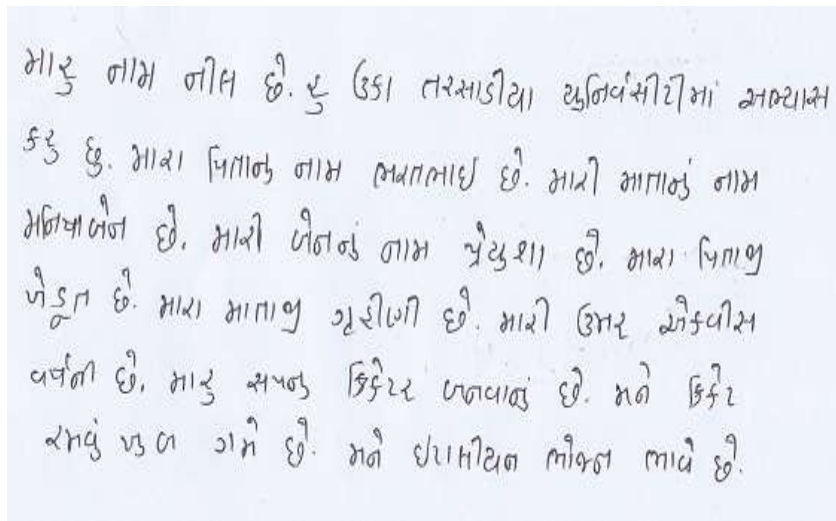 મારુ નામ નીલ છે. હુ ઉકા તરસાડીયા યુનિર્વસીટીમાં અભ્યાસ
કરુ છુ. મારા પિતાનુ નામ ભરતભાઇ છે. મારી માતાનું નામ
મનિષાબેન છે. મારી બેનનું નામ પ્રેયુશા છે. મારા પિતાજી
ખેડૂત છે. મારા માતાજી ગૃહીણી છે. મારી ઉમર એકવીસ
વર્ષની છે. મારુ સપનુ ક્રિકેટર બનવાનું છે. મને ક્રિકેટ
રમવું ખુબ ગમે છે. મને ઇટાલીયન ભોજન ભાવે છે.